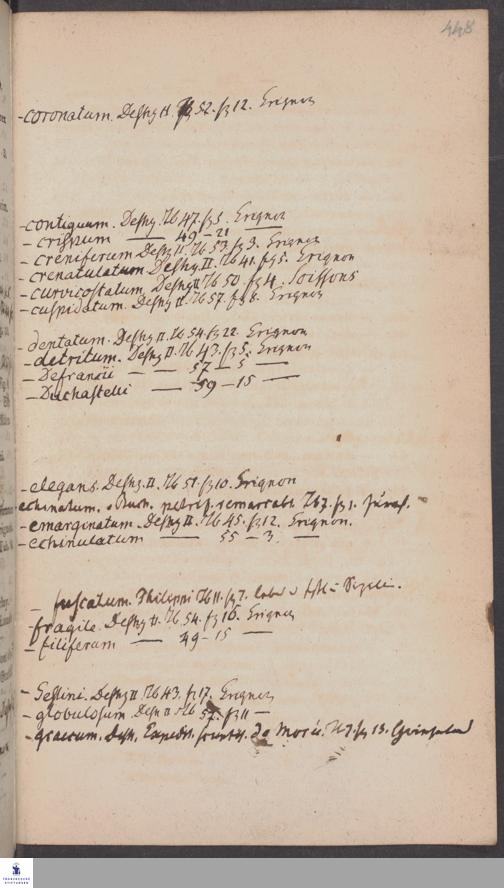 448
- coronatum. Desh. II. Tb 52. fg 12. Grignon
- contiguum. Desh. Tb 47. fg 5. Grignon
- crispum —— 49 - 21
- creniferum Desh II. Tb 53. fg 3. Grignon
- crenatulatum Desh. II. Tb 41. fg 5. Grignon
- curvicostatum. Desh II Tb 50. fg 4. Soissons
- cuspidatum. Desh II. Tb 57. fg 8. Grignon
- dentatum. Desh II. Tb 54. fg 22. Grignon
- detritum. Desh II. Tb 43. fg 5. Grignon
- Defrancii — — 57 — 5 ——
- Duchastelli —— 59 - 15 ——
- elegans. Desh. II. Tb 51. fg 10. Grignon
echinatum. v Buch. petref. remarcabl. Tb 7. fg 1.
- emarginatum. Desh II. Tb 45. fg 12. Grignon.
- echinulatum —— 55 - 3. ——
- fuscatum. Philippi Tb 11. fg 7.
- fragile. Desh II. Tb 54. fg 16. Grignon
- filiferum —— 49 - 15 ——
- Geslini. Desh II. Tb 43. fg 17. Grignon
- globulosum. Desh II Tb 52. fg 11 —
- graecum. Desh. Expedit. de Morée. fg 13.